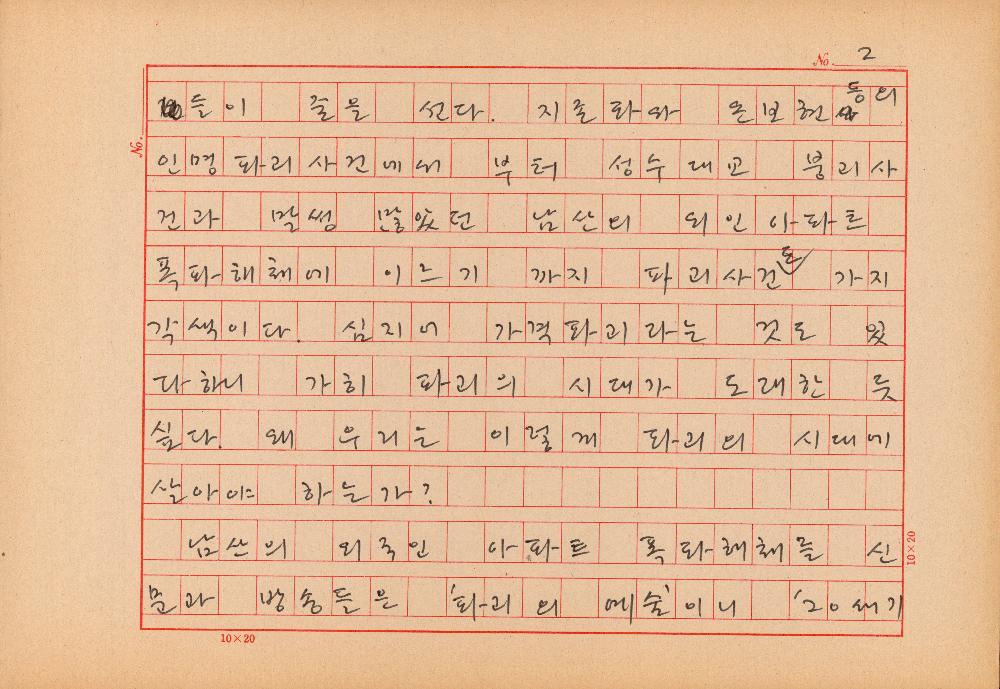 No. 2
들이 줄을 선다. 지존파와 온보현 등의
No.
인명 파괴사건에서 부터 성수대교 붕괴사
건과 말썽 많았던 남산의 외인아파트
폭파해체에 이느기 까지 파괴사건도 가지
각색이다. 심지어 가격파괴라는 것도 있
다하니 가히 파괴의 시대가 도래한 듯
싶다. 왜 우리는 이렇게 파괴의 시대에
살아야 하는가?
남산의 외국인 아파트 폭파해체를 신
문과 방송들은 '파괴의 예술'이니 '20세기
10×20
10×20